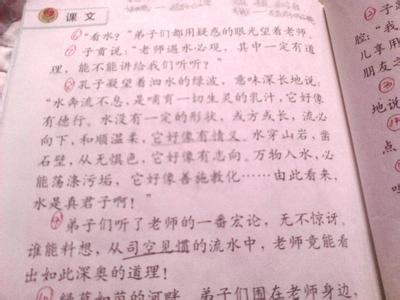 课文
“看水？”弟子们都用疑惑的眼光望着老师。
子贡说：“老师遇水必观，其中一定有道
理，能不能讲给我们听听？”
孔子凝望着泗水的绿波，意味深长地说：
“水奔流不息，是哺育一切生灵的乳汁，它好像
有德行。水没有一定的形状，或方或长，流必
向下，和顺温柔，它好像有情义。水穿山岩，凿
石壁，从无惧色，它好像有志向。万物入水，必
能荡涤污垢，它好像善施教化……由此看来，
水是真君子啊！”
弟子们听了老师的一番宏论，无不惊讶。
谁能料想，从司空见惯的流水中，老师竟能看
出如此深奥的道理！
绿草如茵的河畔，弟子们围在老师身边，
子
腔：“我
儿享用
朋友之
地说
点